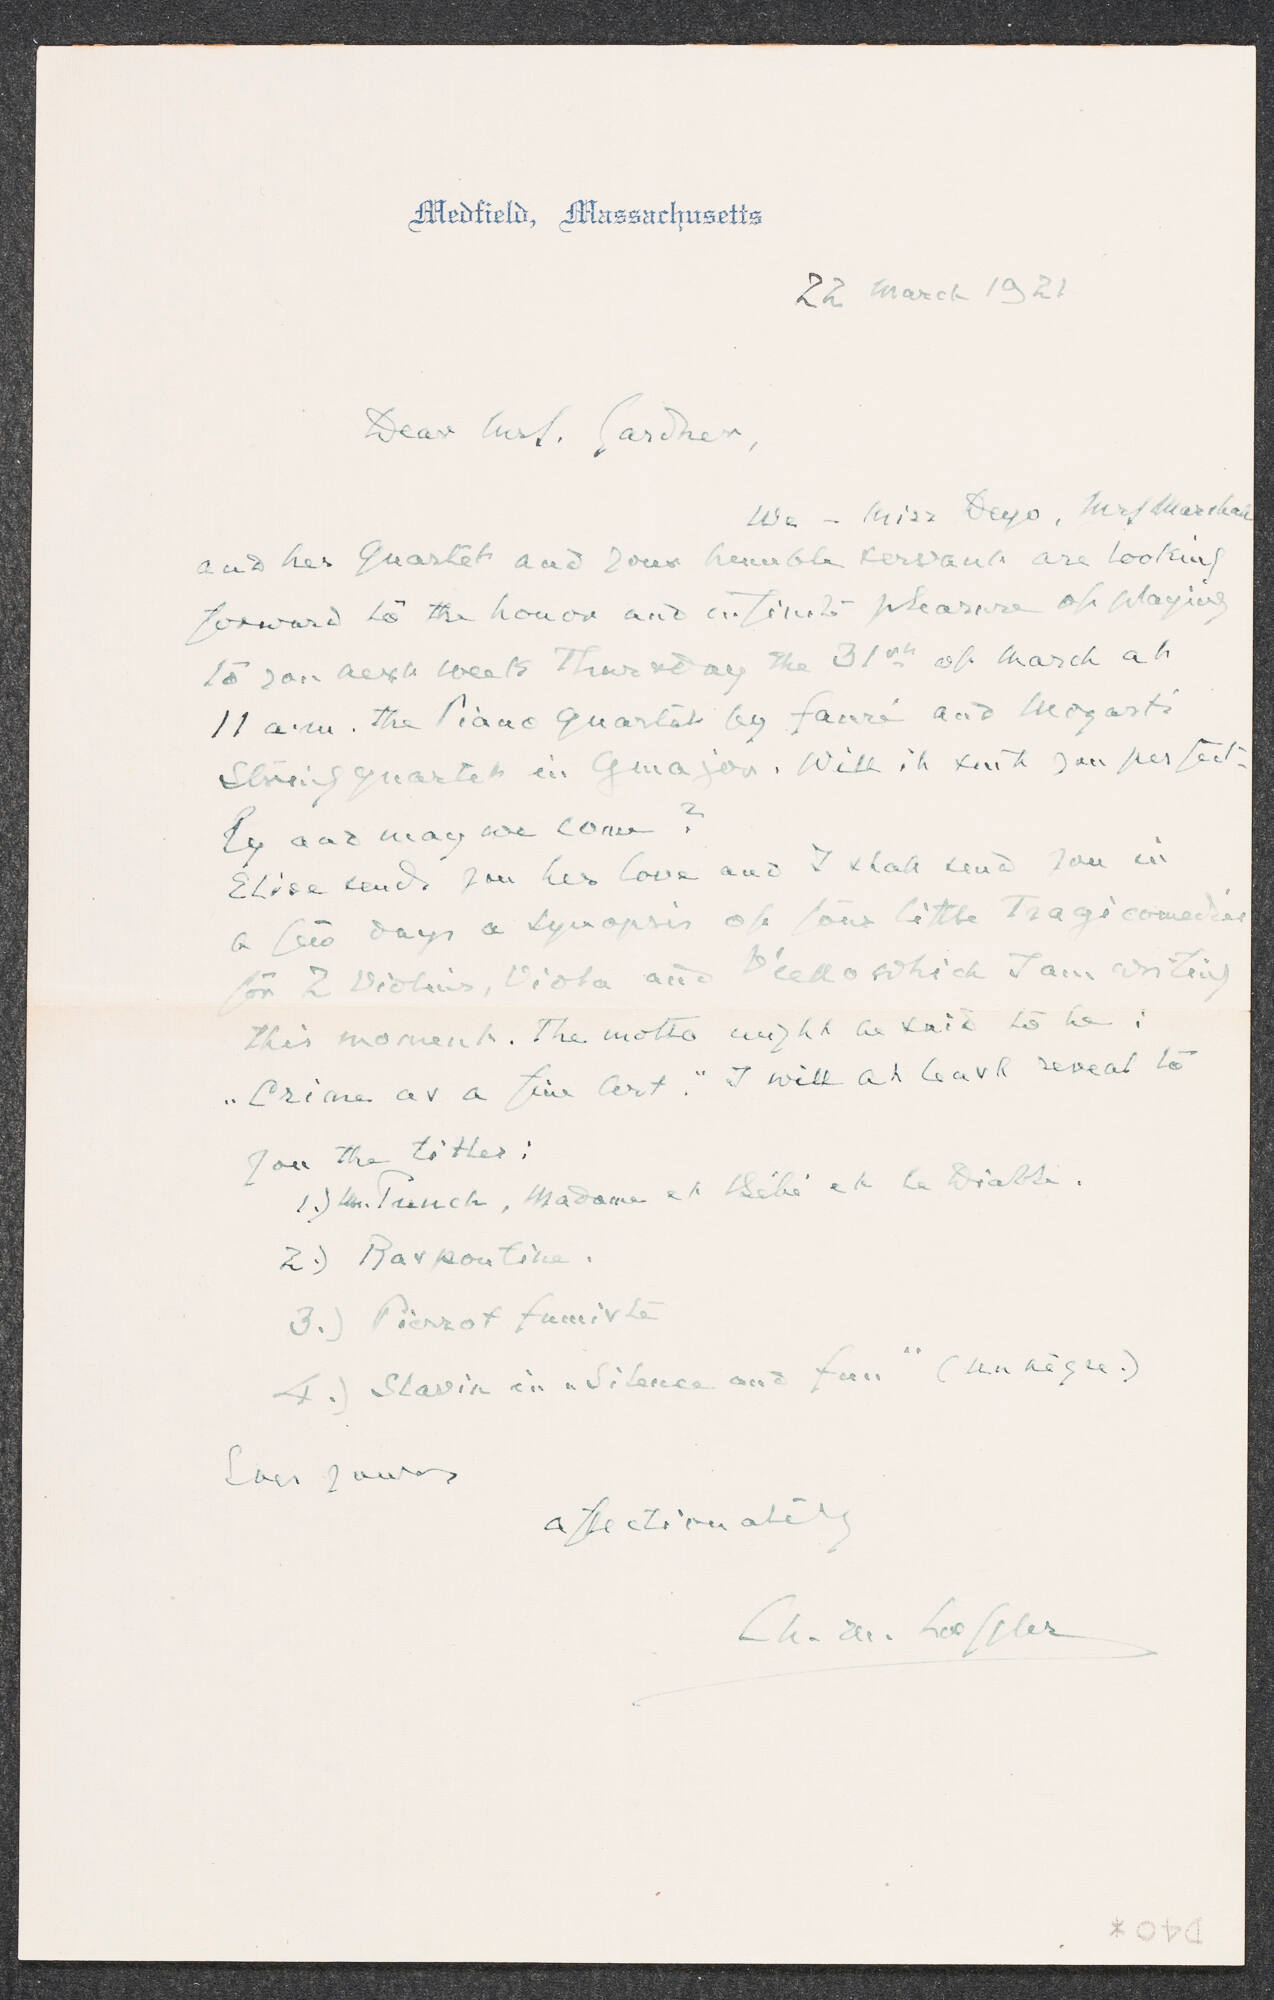 Medfield, Massachusetts
22 March 1921
Dear Mrs. Gardner,
We – Miss Deyo, Mrs Marshall
and her Quartet and your humble servant are looking
forward to the honor and infinite pleasure of playing
to you next week Thursday the 31st of March at
11 a.m. the Piano Quartet by Fauré and Mozart's
String quartet in G major. Will it suit you perfect-
ly and may we come?
Elise sends you her love and I shall send you in
a few days a synopsis of four little Tragicomedies
for 2 Violins, Viola and V'cello which I am writing
this moment. The motto might be said to be:
„Crime as a fine Art." I will at least reveal to
you the titles:
1.) Mr. Punch, Madame et Bébé et le Diable.
2.) Raspoutine.
3.) Pierrot fumiste
4.) Slavin in „Silence and fun" (un nègre.)
Ever yours
affectionately
Ch. M. Loeffler
D40*